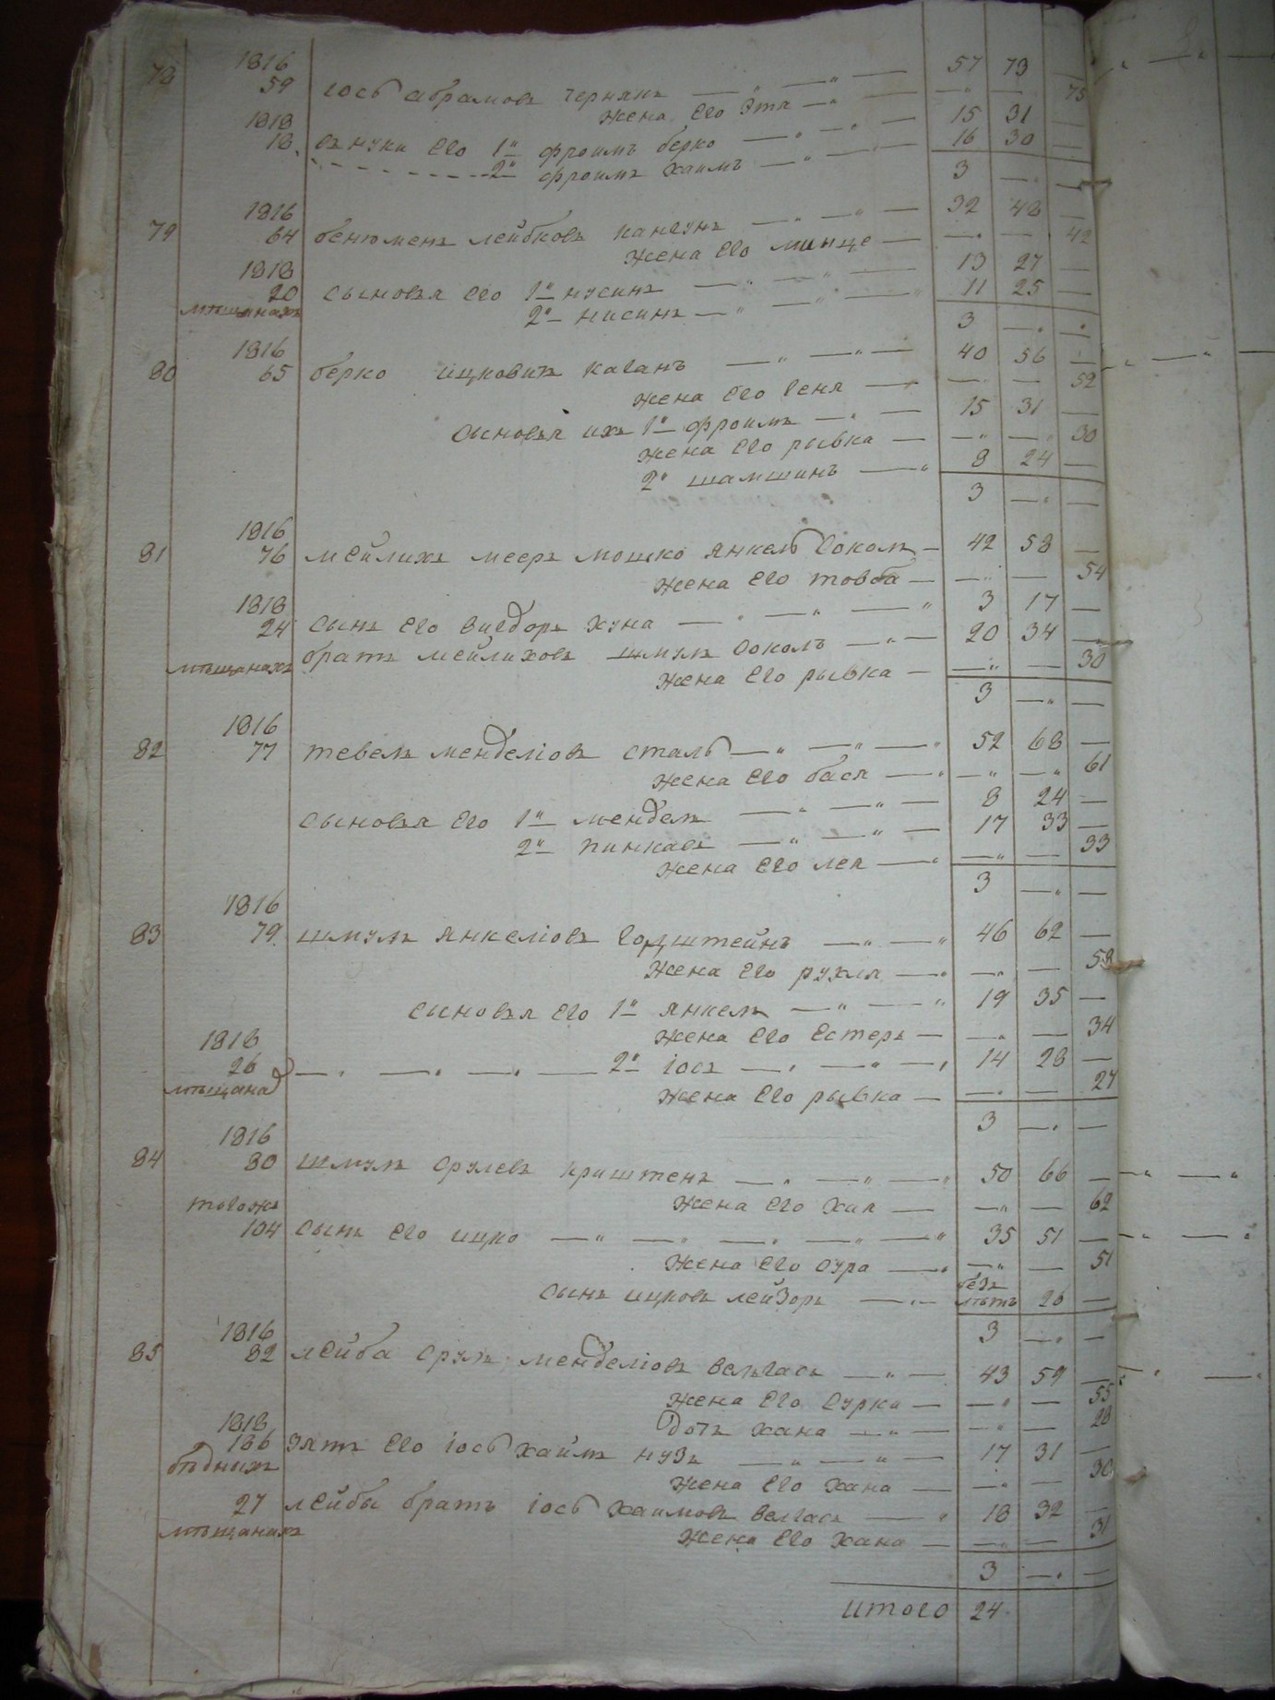 1816
78 59 Іось Абрамовъ Чернякъ — „ — „ — 57 73 —
жена его Этя — „ — — „ — 75
1818
18 внуки его 1й Фроимъ Берко — „ — „ — 15 31 —
2й Фроимъ Хаимъ — „ — „ — 16 30 —
3 — „ —
1816
79 64 Бенюменъ Лейбковъ — „ — „ — 32 48 —
жена его — — „ — 42
1818
20 сыновья его 1й Нусинъ — „ — „ — 13 27 —
мещанахъ 2й Нисинъ — „ — „ — 11 25 —
3 — „ „
1816
80 65 Берко Ицковичъ Каганъ — „ — „ — 40 56 —
жена его Геня — — „ — 52
сыновья ихъ 1й Фроимъ — „ — 15 31 —
жена его Рывка — — „ — „ 30
2й Шамшинъ — „ 8 24 —
3 — „ —
1816
81 76 Мейлихъ Мееръ Мошко Янкель Соколъ — 42 58 —
жена его Товба — — „ — 54
1818
24 сынъ его Хуна — „ — „ — „ 3 17 —
мещанахъ братъ Мейлиховъ Шмуль Соколъ — „ — 20 34 —
жена его Рывка — — „ — 30
3 — „ —
1816
82 77 Тевель Менделіовъ Сталь — „ — „ — „ 52 68 —
жена его Бася — „ — „ — „ 61
сыновья его 1й Мендель — „ — „ — 8 24 —
2й Пинкасъ — „ — „ — 17 33 —
жена его Лея — „ — „ — 33
3 — „ —
1816
83 79 Шмуль Янкеліовъ — „ — „ 46 62 —
жена его Рухля — „ — „ — 58
сыновья его 1й Янкель — „ — „ 19 35 —
жена его Естеръ — — „ — 34
1818
26 — „ — „ — „ — 2й Іось — „ — „ — „ 14 28 —
мещанах жена его Рывка — — „ — 27
3 — „ —
1816
84 80 Шмуль Срулевъ Криштенъ — „ — „ — „ 50 66 —
жена его Хая — — „ — 62
тогожъ
104 сынъ его Ицко — „ — „ — „ — „ — „ 35 51 —
жена его Сура — „ — „ — 51
сынъ Ицковъ Лейзоръ — „ — безъ летъ 26 —
3 — „ —
1816
85 82 Лейба Сруль Менделіовъ — „ — 43 59 —
жена его Сурка — — „ — 55
дочь Хана — „ — — „ — 28
1818
166 зять его Іось Хаимъ Нузъ — „ — „ — 17 31 —
бѣдныхъ жена его Хана — — „ — 30
27 Лейбы братъ Іось Хаимовъ — „ 18 32 —
мещанахъ жена его Хана — — „ — 31
3 — „ —
итого 24